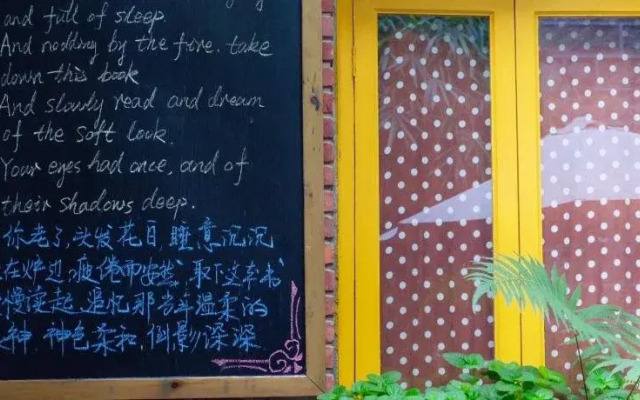 and full of sleep.
And nodding by the fire. take
down this book
And slowly read and dream
of the soft look.
Your eyes had once, and of
their shadows deep.
你老了,头发花白,睡意沉沉
在炉边,疲倦而安然,取下这本书
慢读起,追忆那当年温柔的
神,神色柔和,倒影深深